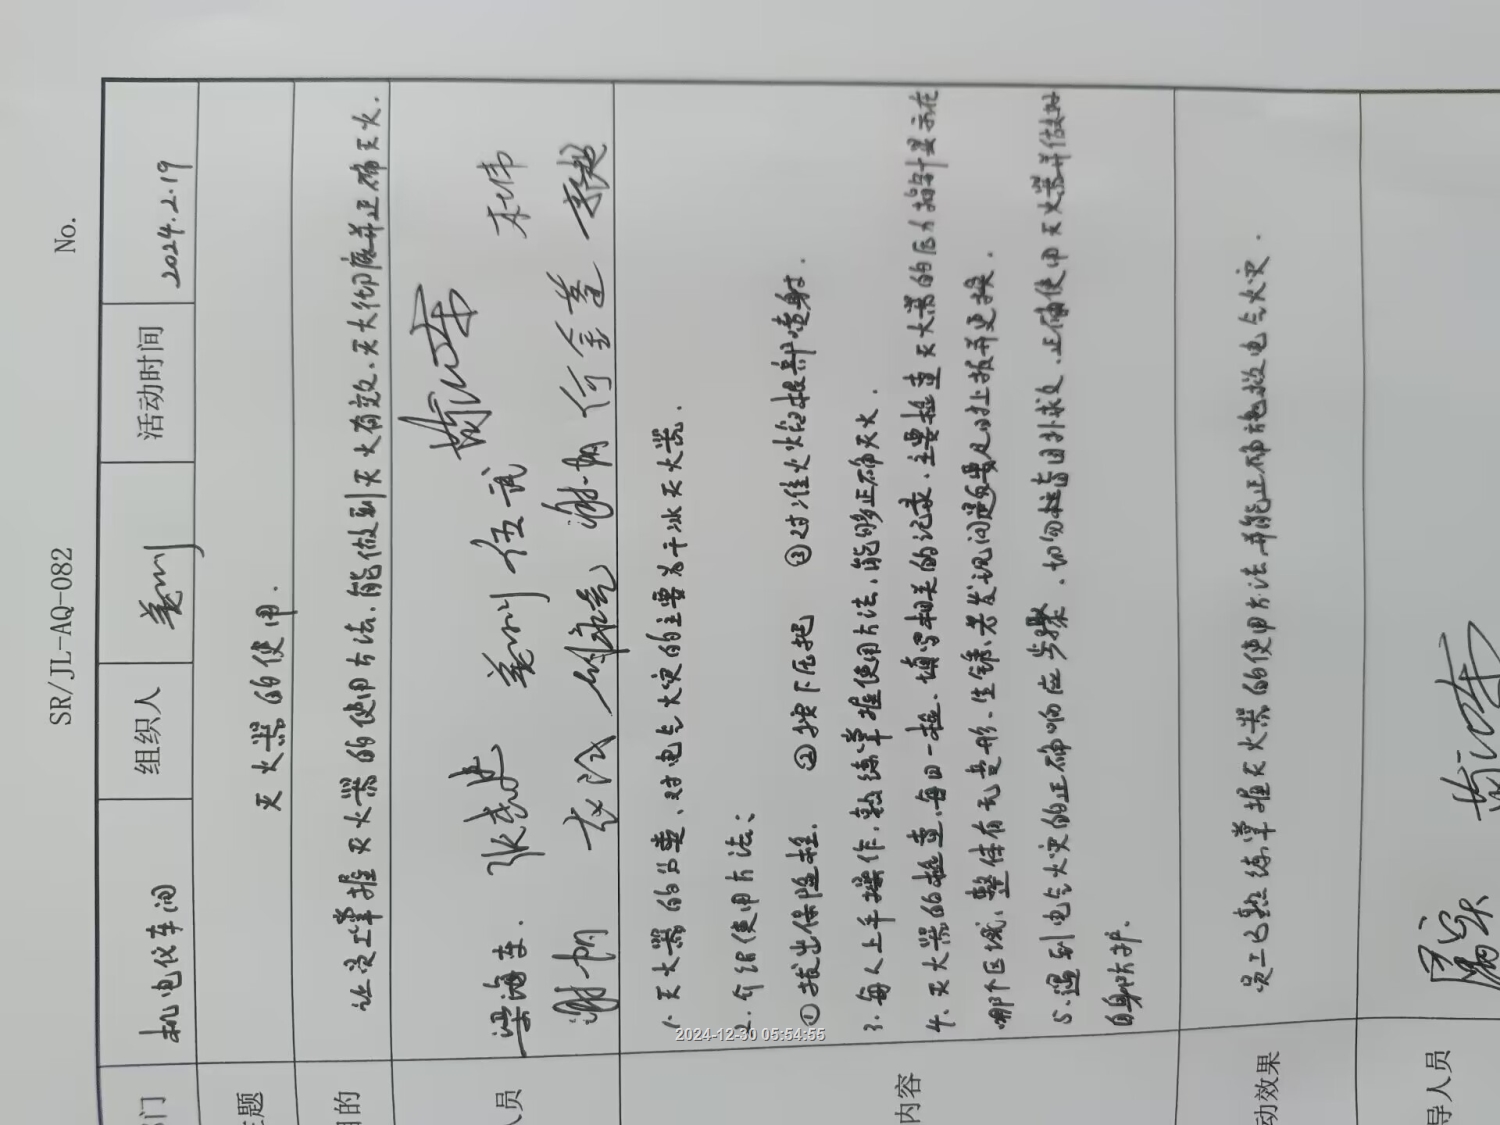 SR/JL-AQ-082 No.
门 机电仪车间 组织人 姜训 活动时间 2024.2.19
题 灭火器的使用.
目的 让员工掌握灭火器的使用方法.能做到灭火有效.灭火彻底并正确灭火.
人员 梁海车. 张志忠 姜训 伍武 杜伟
谢帅 谢娟 何金莲 李超
1.灭火器的分类、对电气火灾的主要为干冰灭火器.
2.介绍使用方法:
①拔出保险栓. ②按下压把 ③对准火焰根部喷射.
3.每人上手操作.熟练掌握使用方法.能够正确灭火.
4.灭火器的检查.每日一检、填写相关的记录.主要检查灭火器的压力指针显示在
哪个区域、整体有无变形、生锈、若发现问题要及时上报并更换.
内容
5.遇到电气火灾的正确响应步骤.切勿盲目扑救.正确使用灭火器并做好
自身防护.
动效果 员工已熟练掌握灭火器的使用方法.并能正确施救电气火灾.
导人员
2024-12-30 05:54:55